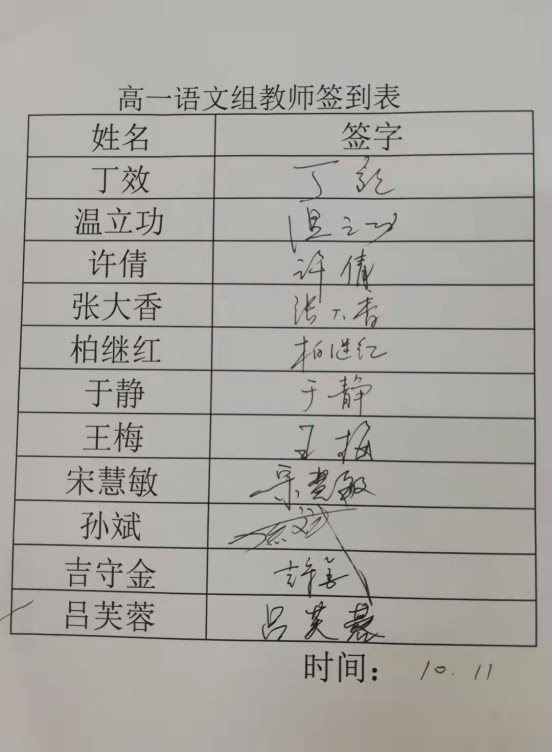 高一语文组教师签到表
姓名 签字
丁效 丁效
温立功 温立功
许倩 许倩
张大香 张大香
柏继红 柏继红
于静 于静
王梅 王梅
宋慧敏 宋慧敏
孙斌 孙斌
吉守金
吕芙蓉 吕芙蓉
时间：10.11